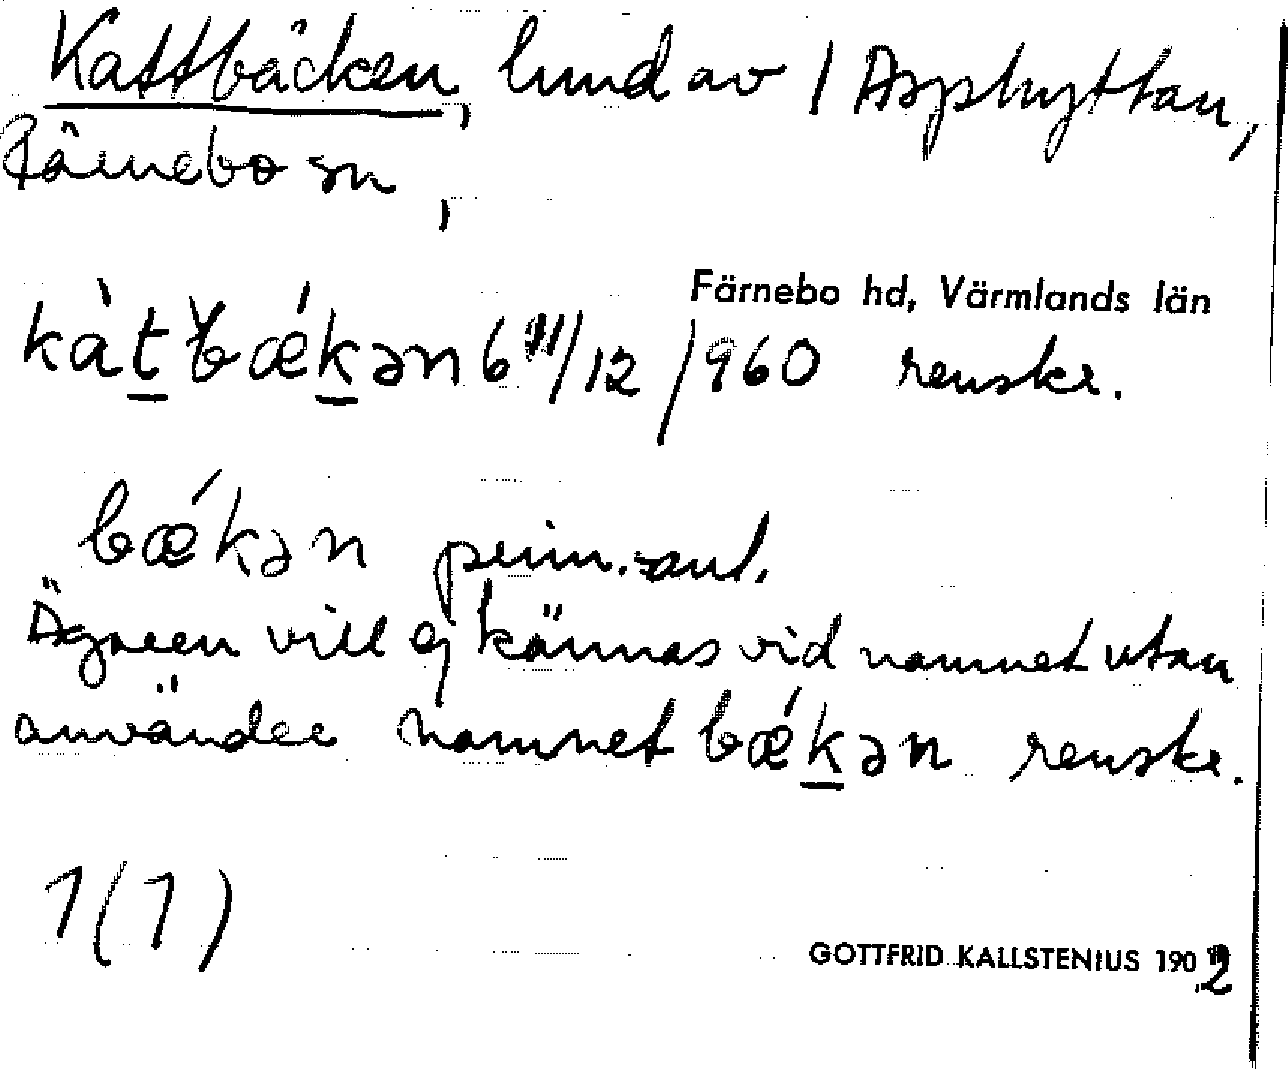 Kattbäcken, lund av 1 Asphyttan,
Färnebo sn,
Färnebo hd, Värmlands län
kàt̲bǽk̲ən 6 11/12 1960 renskr.
bǽkən prim.-ant.
Ägaren vill ej kännas vid namnet utan
använder namnet bǽk̲ən renskr.
1(1)
GOTTFRID KALLSTENIUS 1902